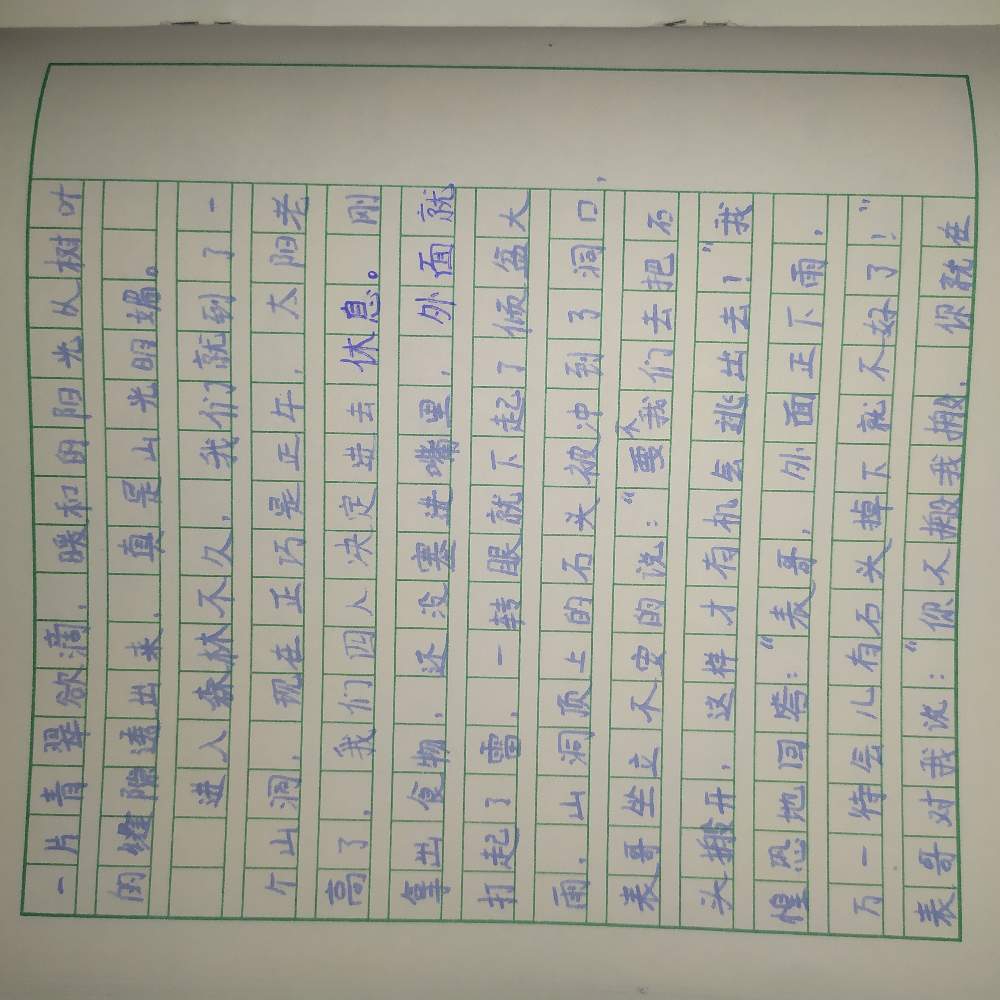 一片青翠欲滴，暖和的阳光从树叶
的缝隙透出来，真是山光明媚。
进入森林不久，我们就到了一
个山洞，现在正巧是正午，太阳老
高了，我们四人决定进去休息。刚
拿出食物，还没塞进嘴里，外面就
打起了雷，一转眼就下起了倾盆大
雨，山洞顶上的石头被冲到了洞口，
表哥坐立不安的说：“要不我们去把石
头搬开，这样才有机会逃出去！”我
惶恐地回答：“表哥，外面正下雨，
万一待会儿有石头掉下就不好了！”
表哥对我说：“你不搬我搬，你就在